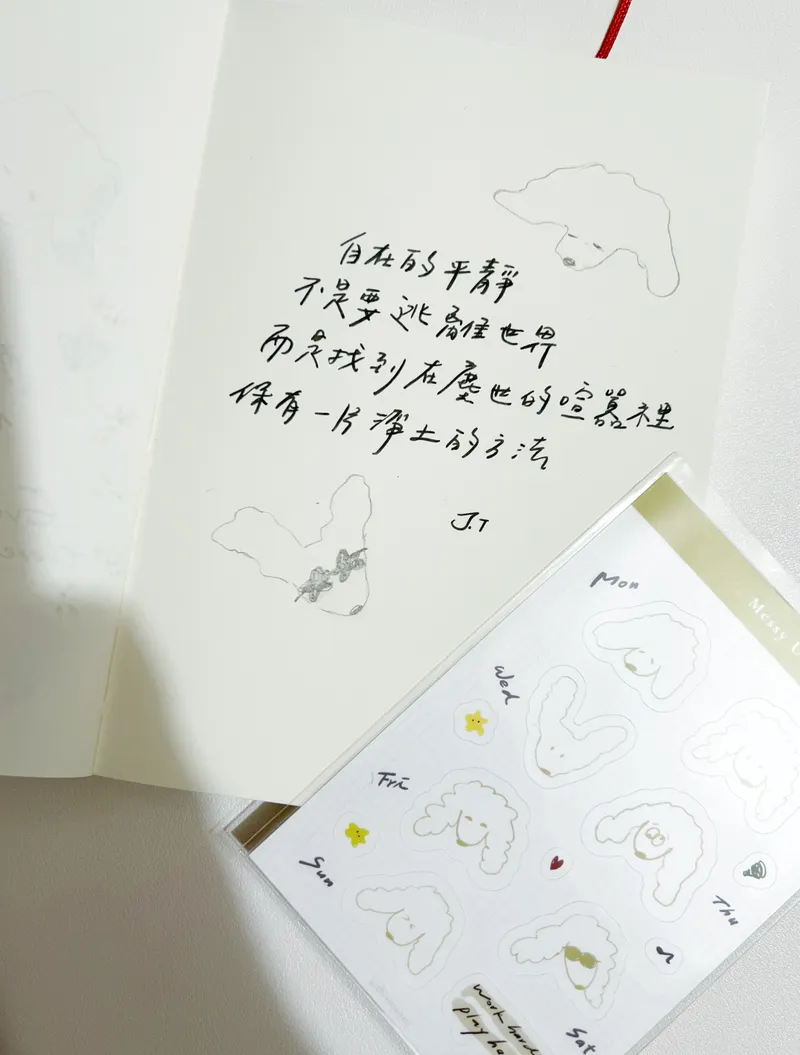 自在的平靜
不是要逃離世界
而是找到在塵世的喧囂裡
保有一片淨土的方法
J.T
Messy
Mon
Wed
Fri
Thu
Sun
Sat
work hard
play